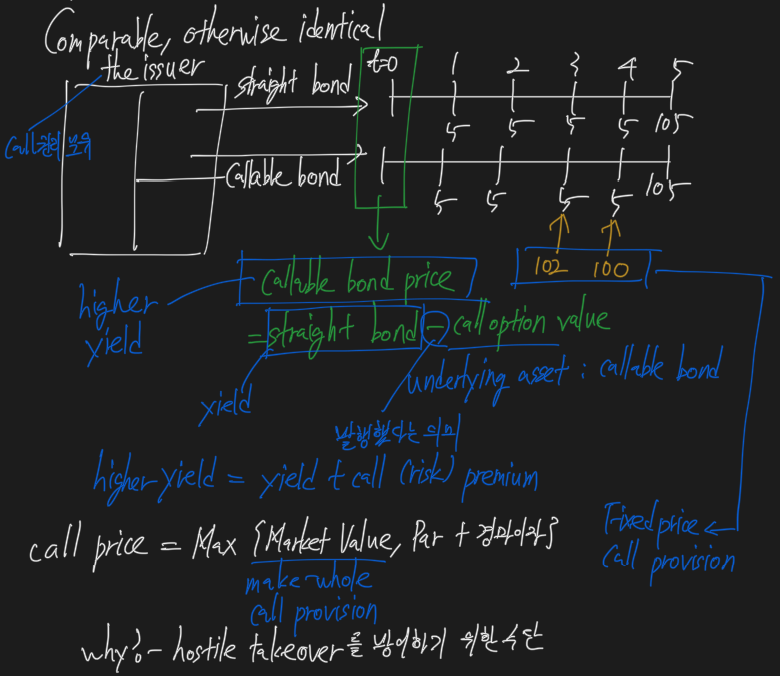 Comparable, otherwise identical
the issuer
straight bond
t=0 1 2 3 4 5
5 5 5 5 105
call권리 보유
Callable bond
5 5 5 5 105
102 100
Callable bond price
higher
yield
= straight bond - call option value
yield
underlying asset : callable bond
발행했다는 의미
higher yield = yield + call (risk) premium
Fixed price
Call provision
call price = Max {Market Value, Par + 경과이자}
make-whole
call provision
why? - hostile takeover를 방어하기 위한 수단